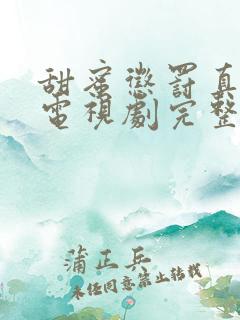 甜蜜懲罰真
電視劇完整
蒲正兵
未经同意禁止转载